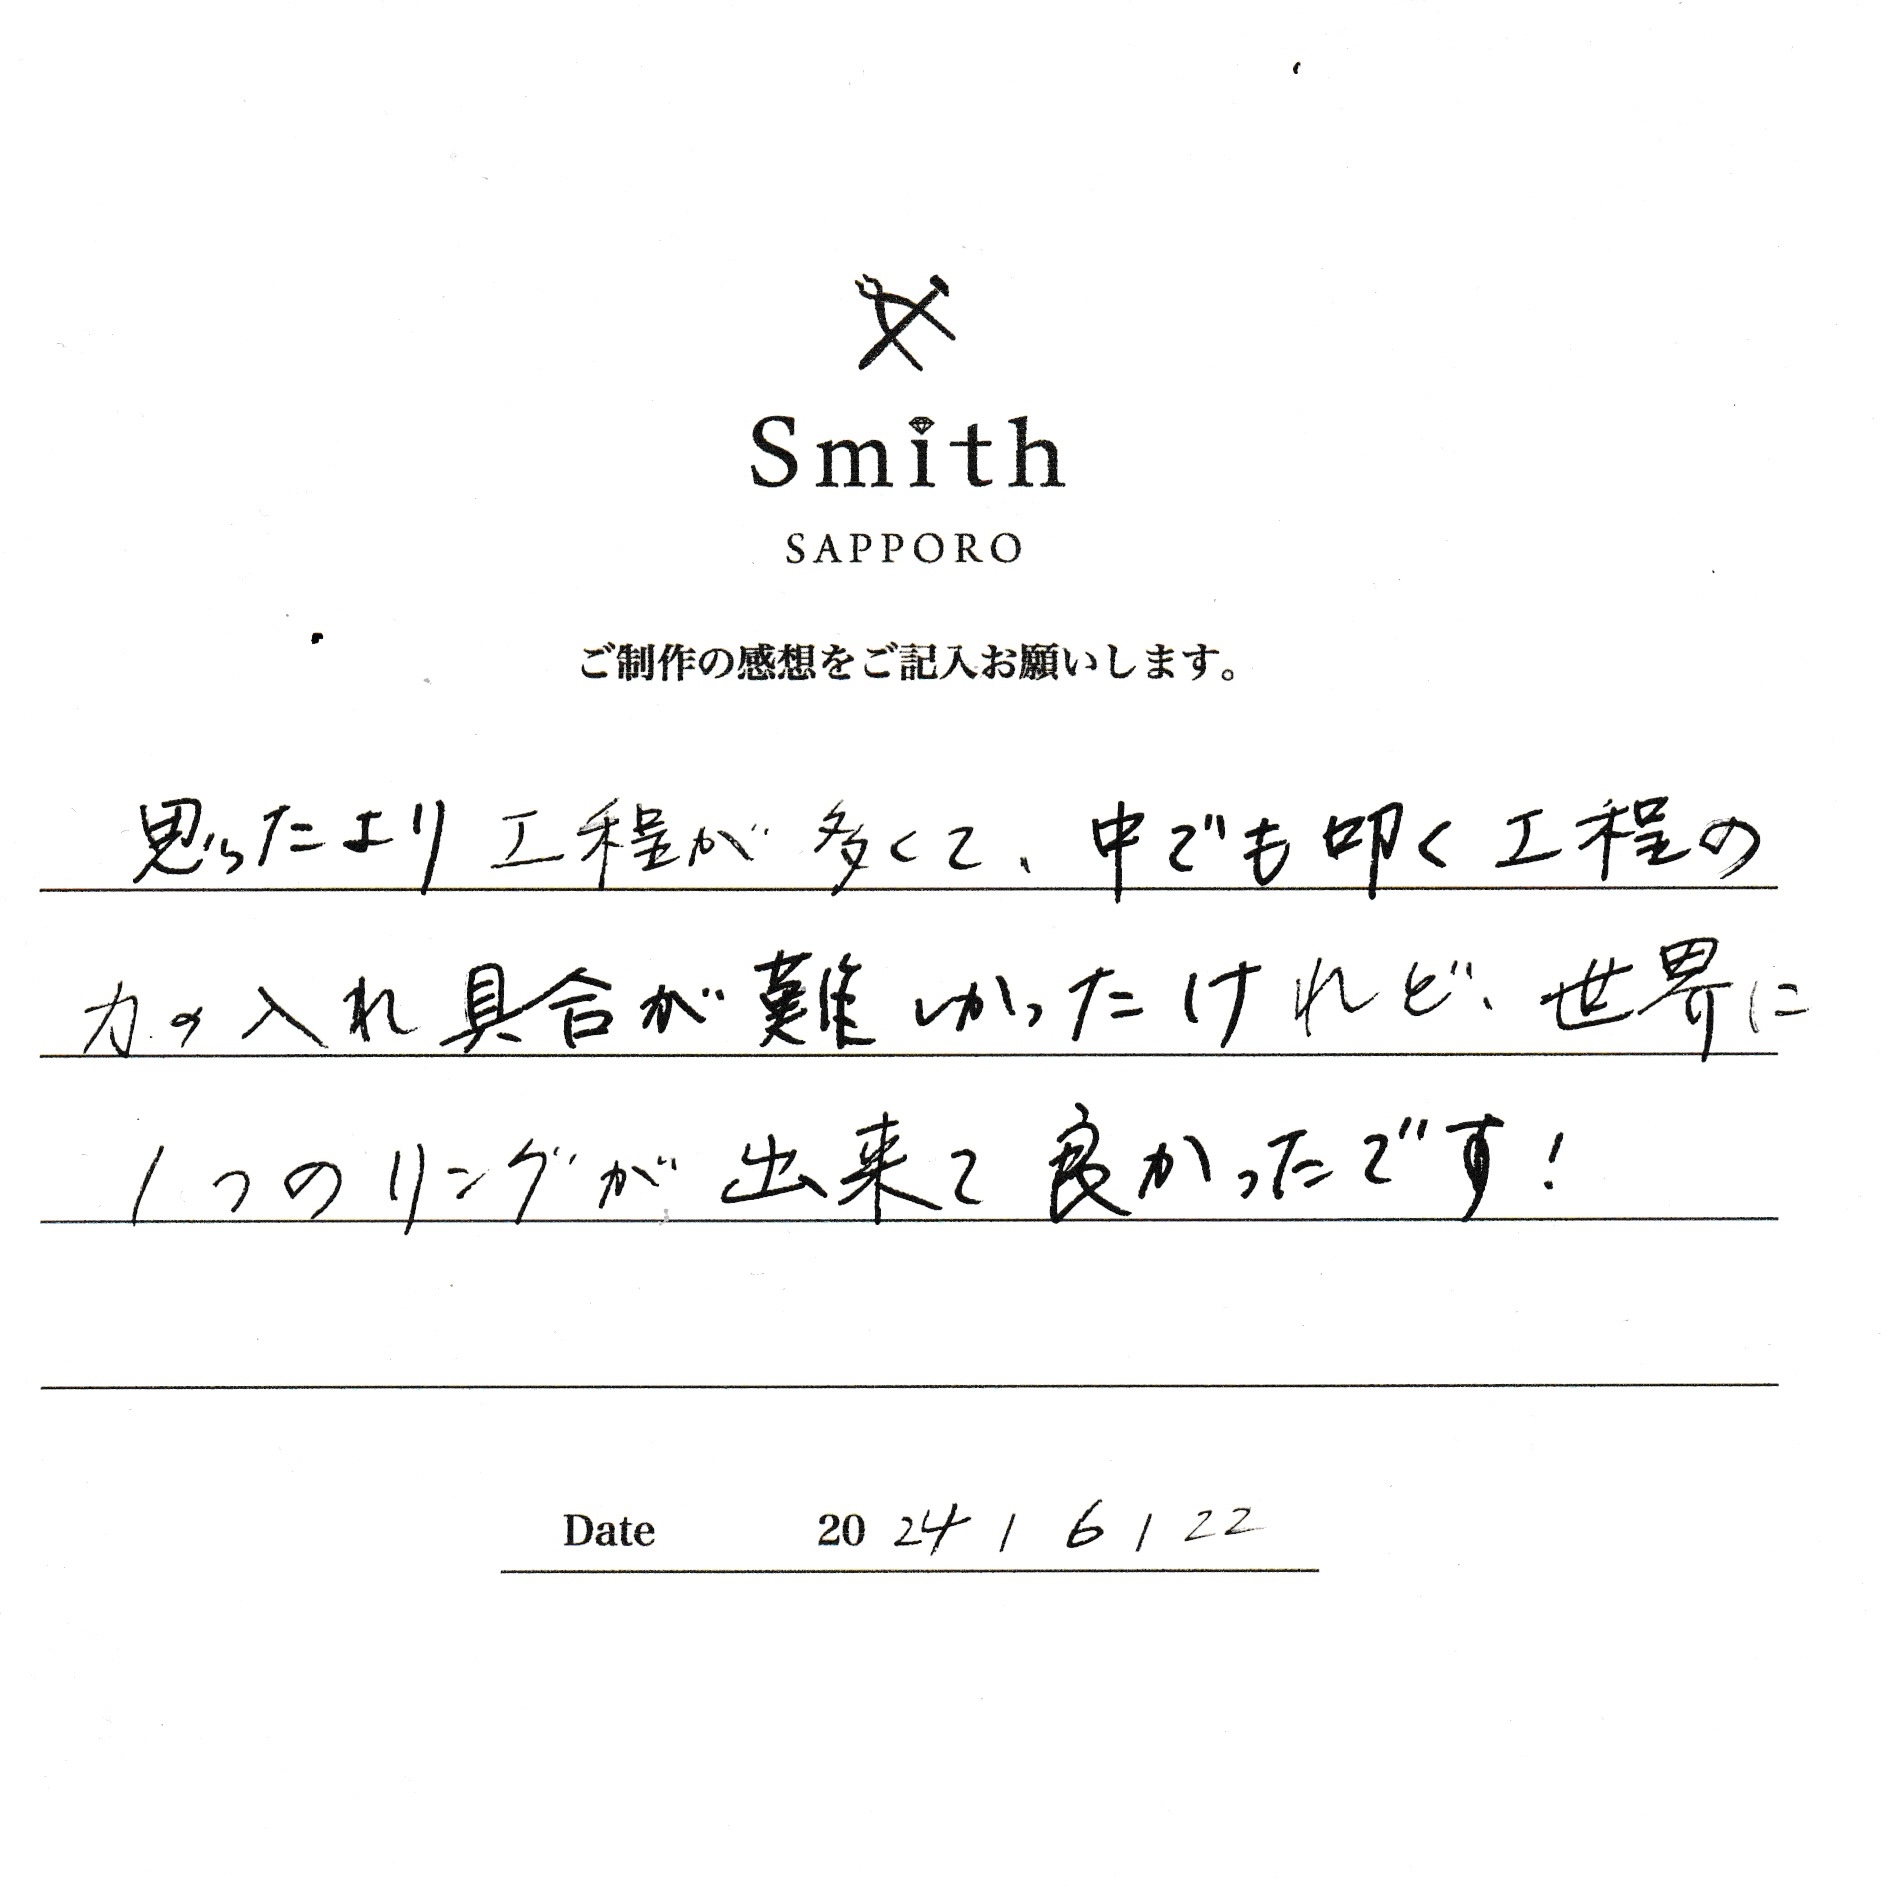 Smith
SAPPORO
ご制作の感想をご記入お願いします。
思ったより工程が多くて、中でも叩く工程の
力の入れ具合が難しかったけれど、世界に
1つのリングが出来て良かったです!
Date 2024/6/22